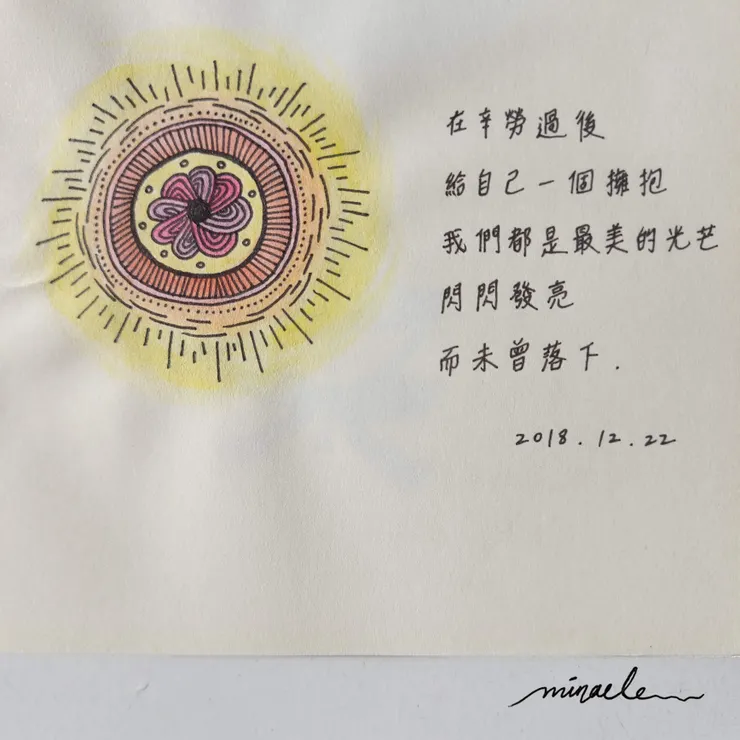 在辛勞過後
給自己一個擁抱
我們都是最美的光芒
閃閃發亮
而未曾落下.
2018.12.22
minaele